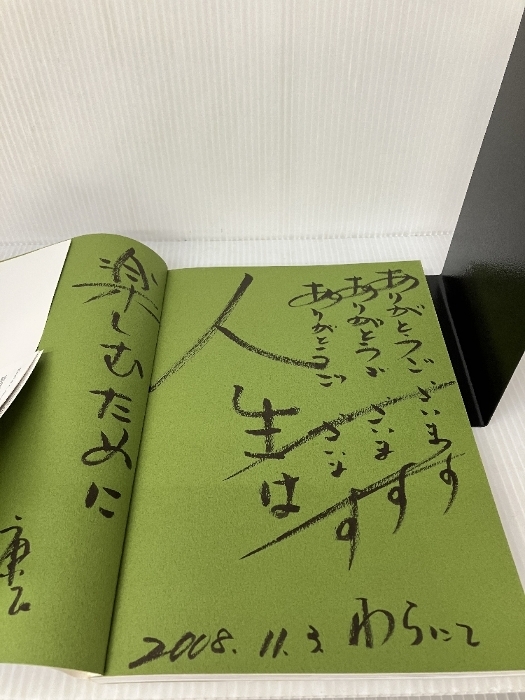 ありがとうございます
ありがとうございます
ありがとうございます
人生は
楽しむために
2008.11.3 わらにて